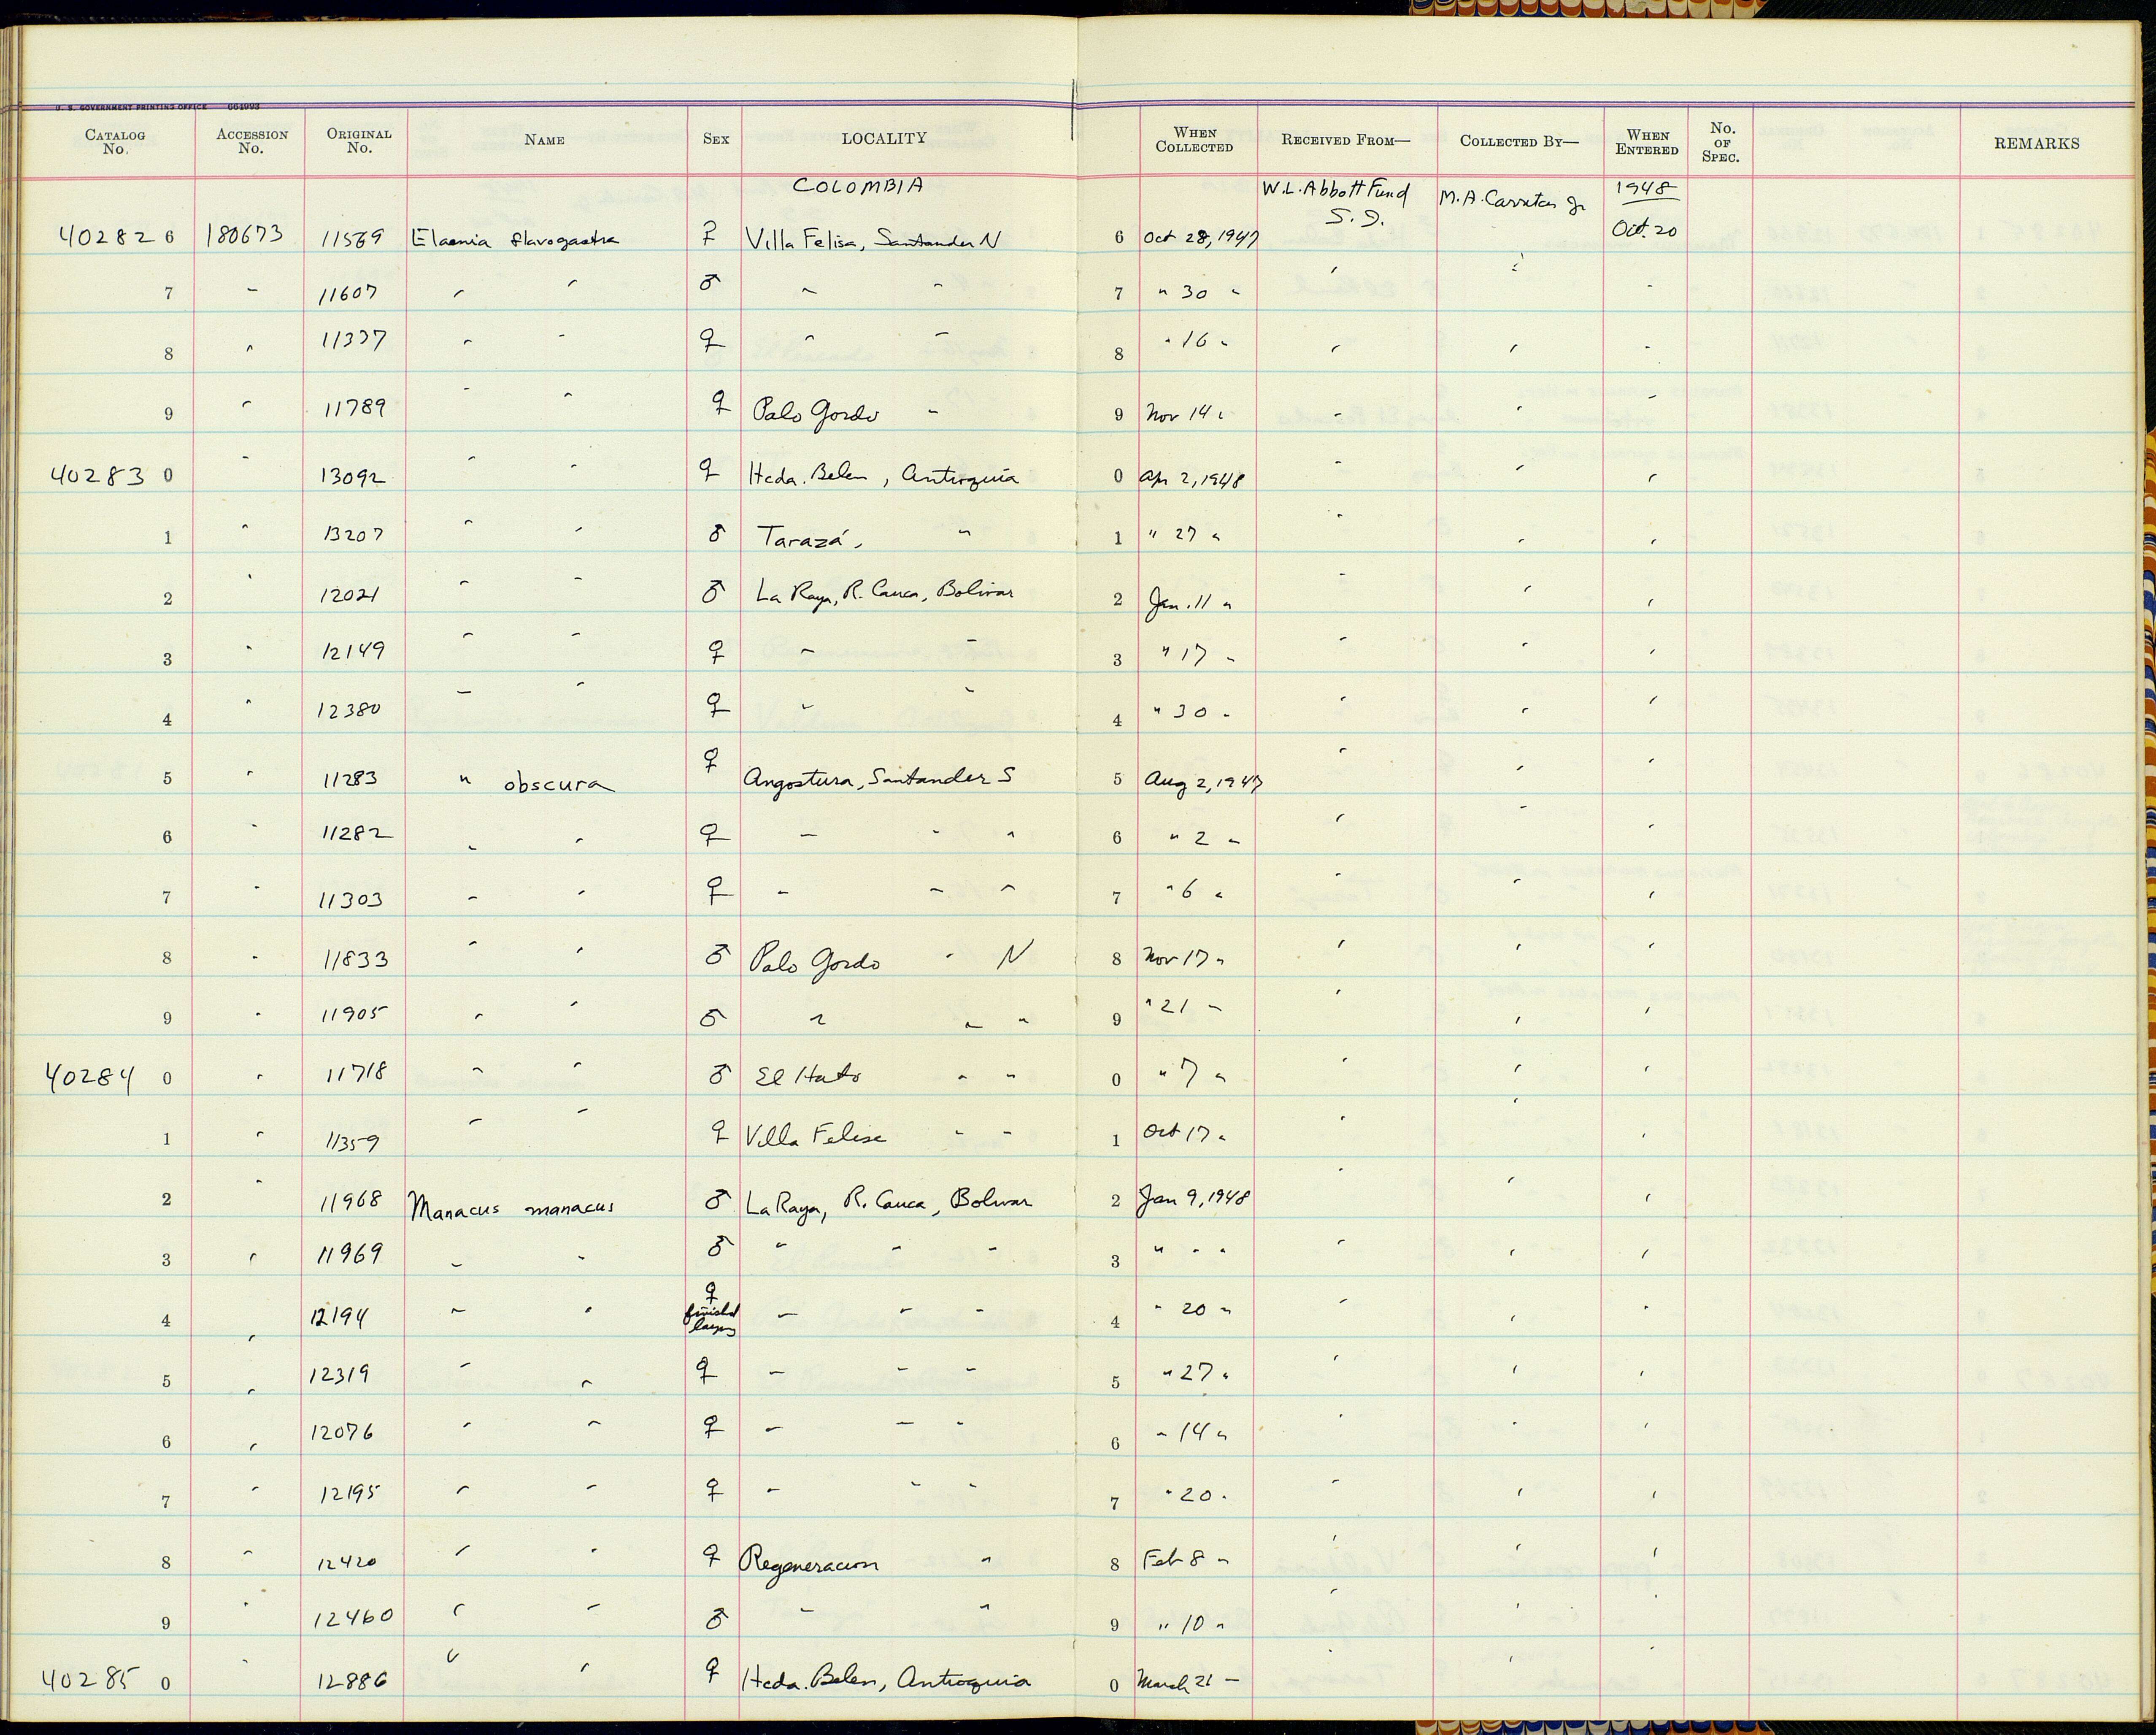 U. S. GOVERNMENT PRINTING OFFICE 664993
CATALOG No. ACCESSION No. ORIGINAL No. NAME SEX LOCALITY WHEN COLLECTED RECEIVED FROM— COLLECTED BY— WHEN ENTERED No. OF SPEC. REMARKS
COLOMBIA W.L. Abbott Fund S.I. M.A. Carriker Jr 1948
40282 6 180673 11569 Elaenia flavogastra ♀ Villa Felisa, Santander N 6 Oct 28, 1947 Oct. 20
7 " 11607 " " ♂ " " 7 " 30 " " " "
8 " 11337 " " ♀ " " 8 " 16 " " " "
9 " 11789 " " ♀ Palo Gordo " 9 Nov 14 " " " "
40283 0 " 13092 " " ♀ Hcda. Belen, Antioquia 0 Apr 2, 1948 " " "
1 " 13207 " " ♂ Tarazá, " 1 " 27 " " " "
2 " 12021 " " ♂ La Raya, R. Cauca, Bolivar 2 Jan. 11 " " " "
3 " 12149 " " ♀ " " 3 " 17 " " " "
4 " 12380 " " ♀ " " 4 " 30 " " " "
5 " 11283 " obscura ♀ Angostura, Santander S 5 Aug 2, 1947 " " "
6 " 11282 " " ♀ " " " 6 " 2 " " " "
7 " 11303 " " ♀ " " " 7 " 6 " " " "
8 " 11833 " " ♂ Palo Gordo " N 8 Nov 17 " " " "
9 " 11905 " " ♂ " " " 9 " 21 " " " "
40284 0 " 11718 " " ♂ El Hato " " 0 " 7 " " " "
1 " 11359 " " ♀ Villa Felisa " " 1 Oct 17 " " " "
2 " 11968 Manacus manacus ♂ La Raya, R. Cauca, Bolivar 2 Jan 9, 1948 " " "
3 " 11969 " " ♂ " " " 3 " " " " " "
4 " 12194 " " ♀ finished laying " " " 4 " 20 " " " "
5 " 12319 " " ♀ " " " 5 " 27 " " " "
6 " 12076 " " ♀ " " " 6 " 14 " " " "
7 " 12195 " " ♀ " " " 7 " 20 " " " "
8 " 12420 " " ♀ Regeneracion " 8 Feb 8 " " " "
9 " 12460 " " ♂ " " 9 " 10 " " " "
40285 0 " 12886 " " ♀ Hcda. Belen, Antioquia 0 March 21 " " " "